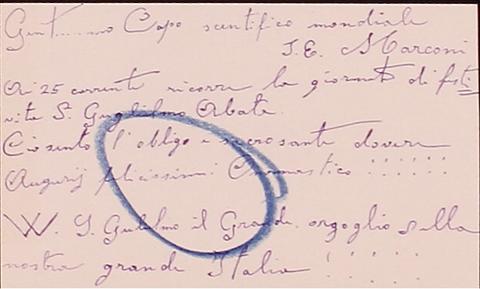 Gent....mo Capo scentifico mondiale
S. E. Marconi
Ai 25 corrente ricorre la giornata di festi
vita S. Guglielmo Abate.
Ciosento l'obligo e sacrosante dovere
Augurij felicissimi Onomastico ! ! ! ! ! !
W. S. Gulielmo il Grande. orgoglio sulla
nostra grande Italia ! ! ! ! !